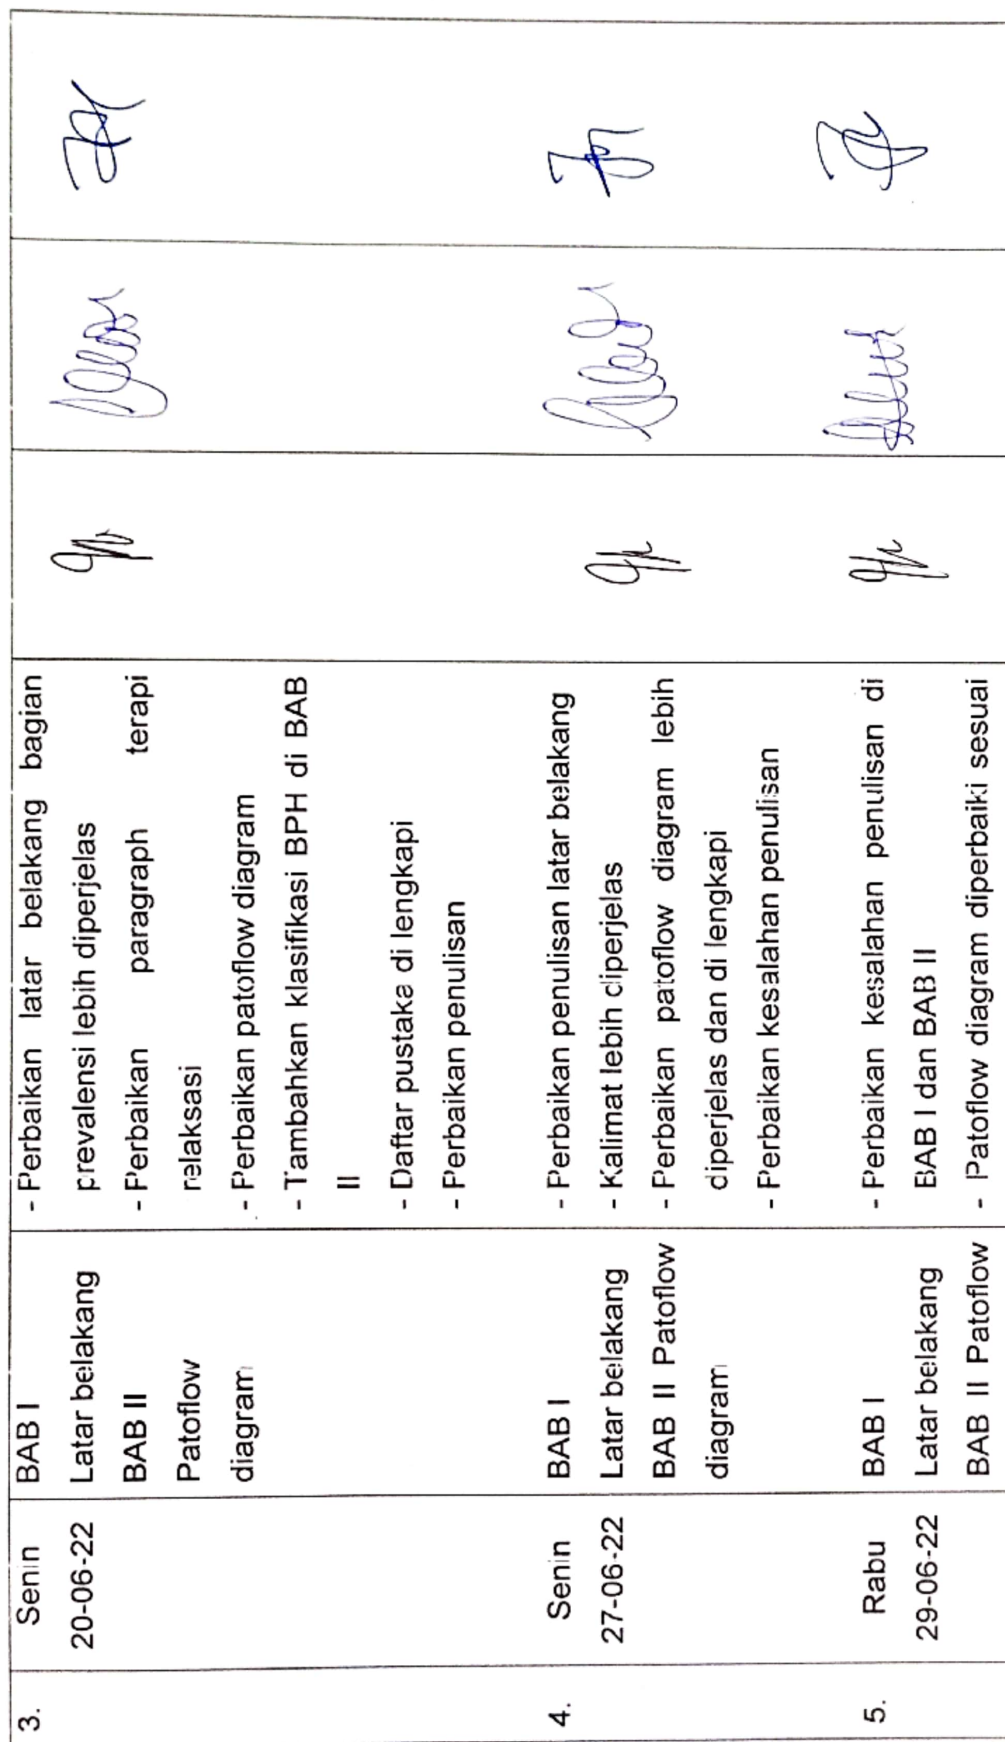 3.
Senin
20-06-22
BAB I
Latar belakang
BAB II
Patoflow
diagram
- Perbaikan latar belakang bagian
prevalensi lebih diperjelas
- Perbaikan paragraph terapi
relaksasi
- Perbaikan patoflow diagram
- Tambahkan klasifikasi BPH di BAB
II
- Daftar pustaka di lengkapi
- Perbaikan penulisan
4.
Senin
27-06-22
BAB I
Latar belakang
BAB II Patoflow
diagram
- Perbaikan penulisan latar belakang
- Kalimat lebih diperjelas
- Perbaikan patoflow diagram lebih
diperjelas dan di lengkapi
- Perbaikan kesalahan penulisan
5.
Rabu
29-06-22
BAB I
Latar belakang
BAB II Patoflow
- Perbaikan kesalahan penulisan di
BAB I dan BAB II
- Patoflow diagram diperbaiki sesuai